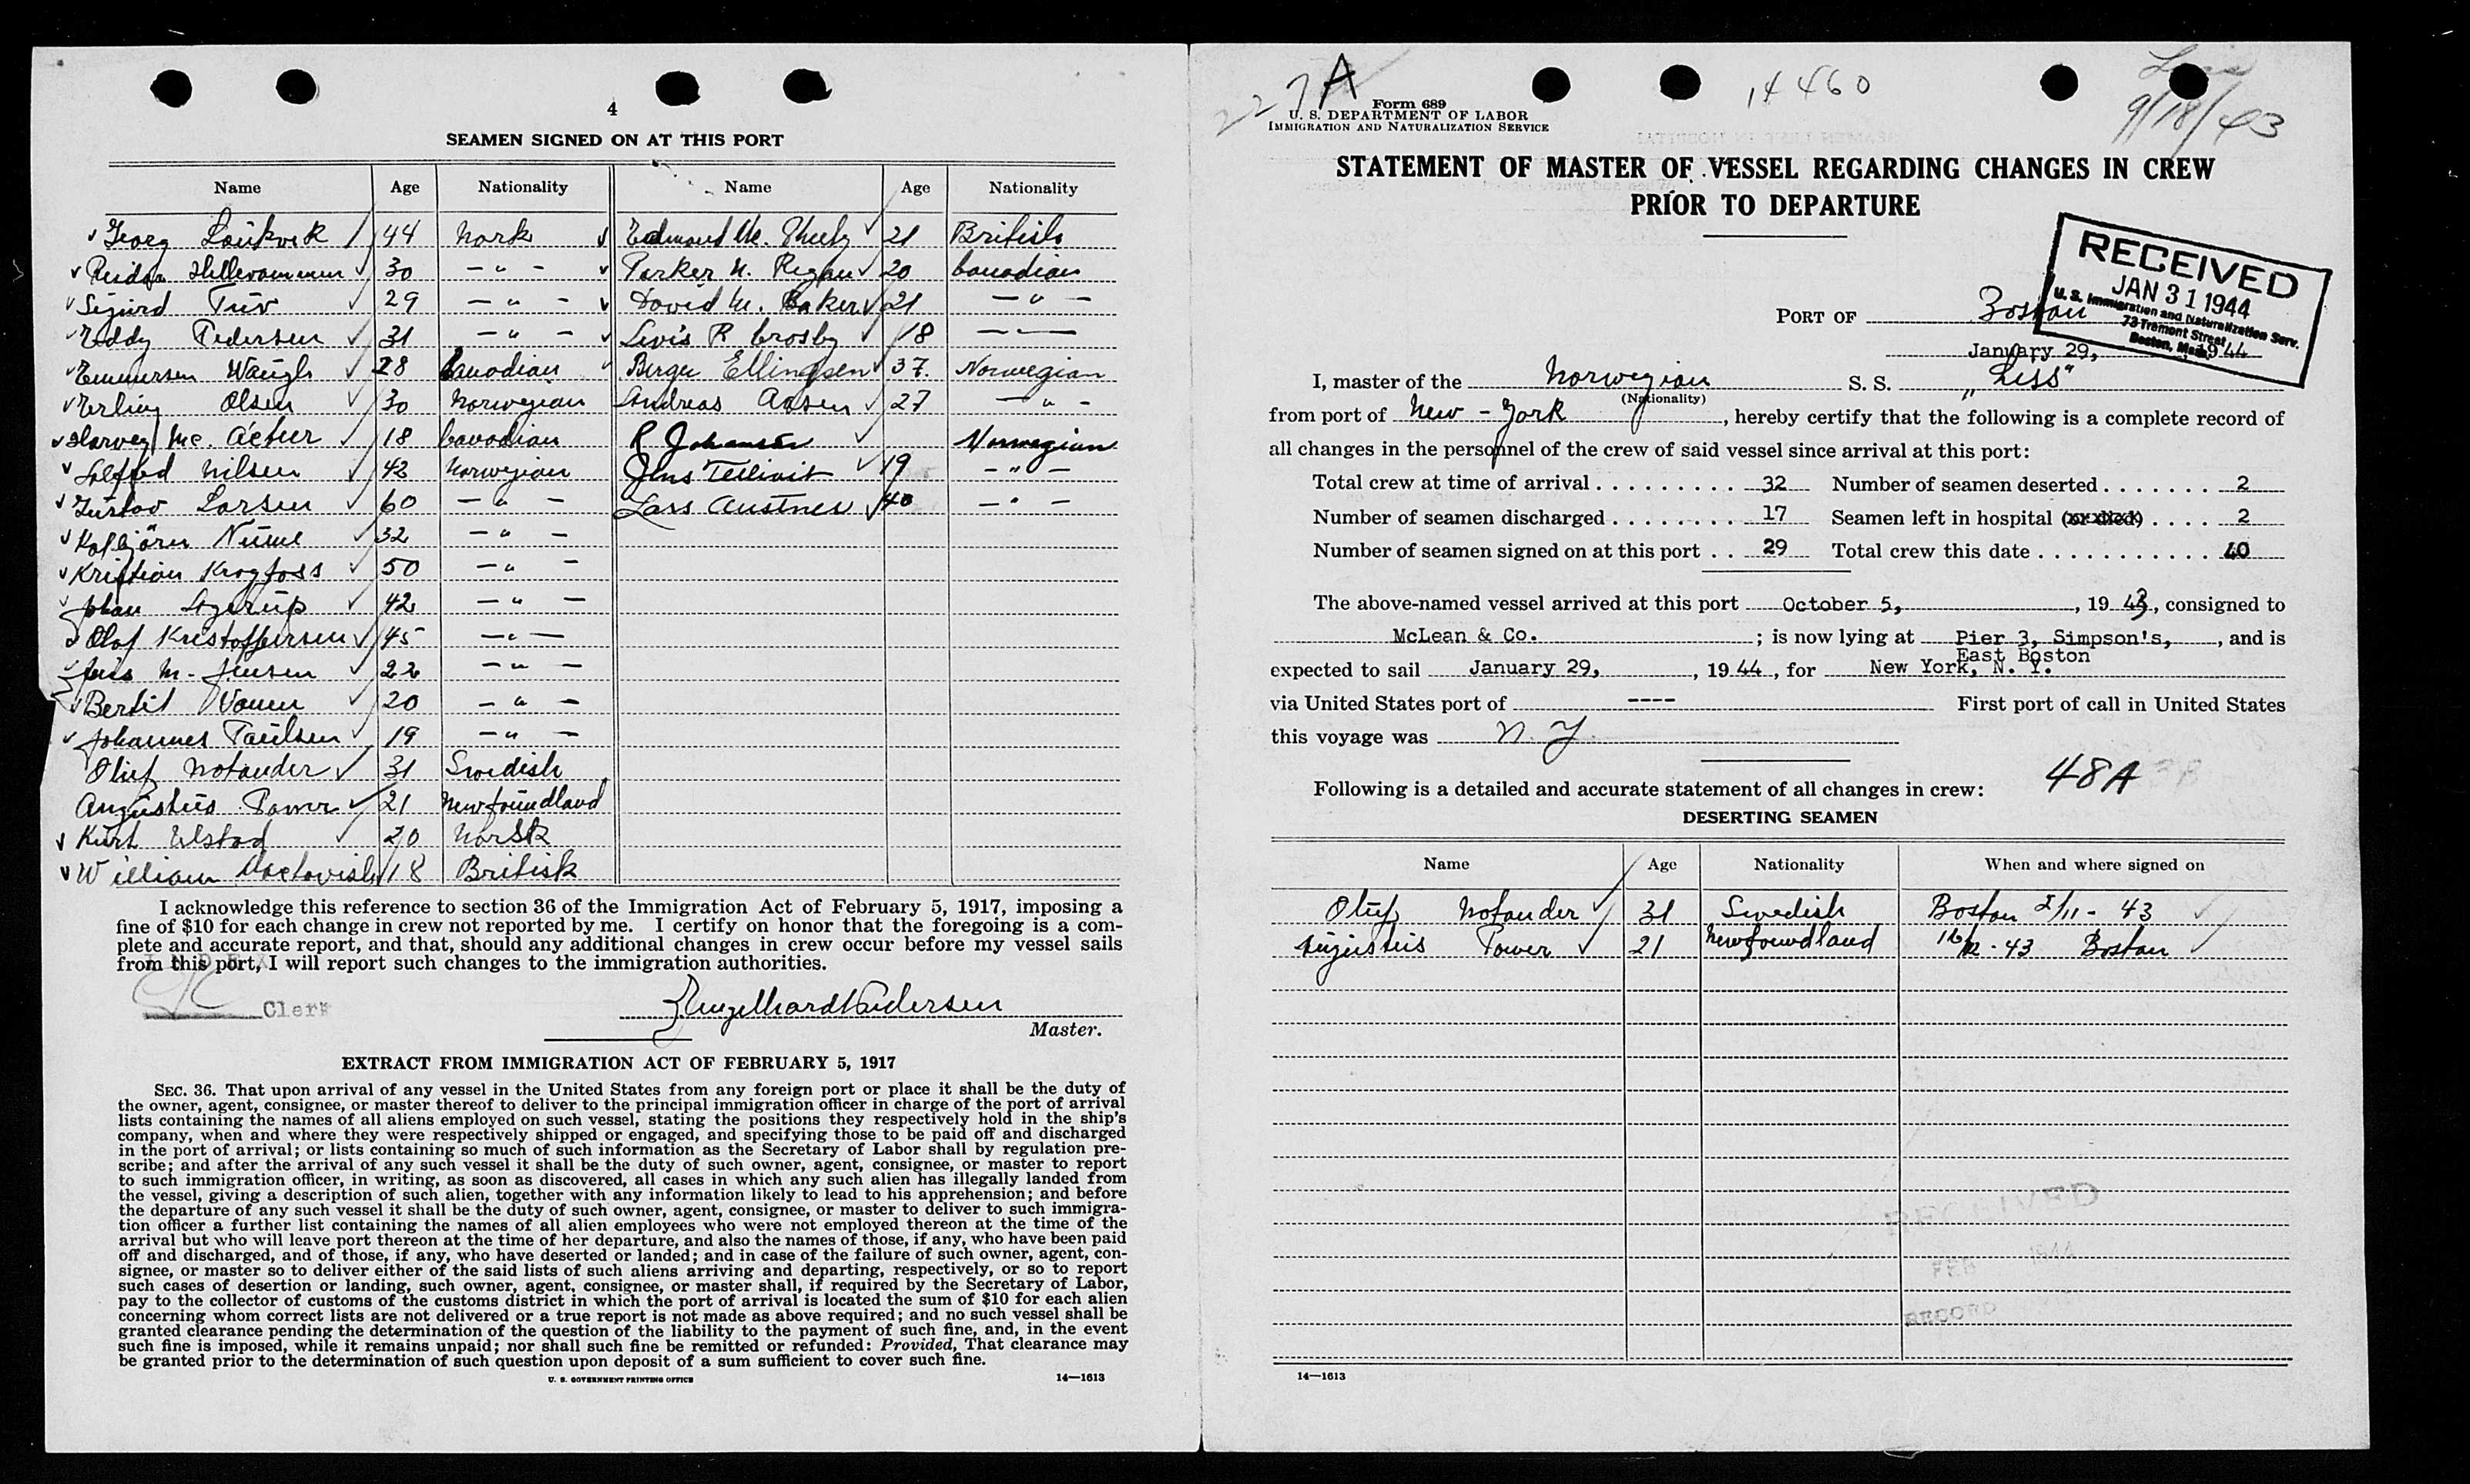 4
SEAMEN SIGNED ON AT THIS PORT
Name Age Nationality Name Age Nationality
Georg 44 Norsk Edmund 21 British
Reidar 30 — " — Parker N. Regan 20 Canadian
Sigurd Tuv 29 — " — David M. Baker 21 — " —
Eddy Pedersen 31 — " — Levis R Crosby 18 — " —
Emmersen Waugh 28 Canadian Birger Ellingsen 37. Norwegian
Erling Olsen 30 Norwegian Andreas Aasen 27 — " —
Harvey Mc. 18 Canadian R Johansen Norwegian
Nilsen 42 Norwegian Jens 19 — " —
Gustav Larsen 60 — " — Lars Austnes 40 — " —
Kolbjörn 32 — " —
Kristian Krogfoss 50 — " —
Johan 42 — " —
Olaf Kristoffersen 45 — " —
Jens M. Jensen 22 — " —
Bertil 20 — " —
Johannes Paulsen 19 — " —
Oluf Notander 31 Swedish
Augustus Power 21 Newfoundland
Kurt Elstad 20 Norsk
William 18 British
I acknowledge this reference to section 36 of the Immigration Act of February 5, 1917, imposing a
fine of $10 for each change in crew not reported by me. I certify on honor that the foregoing is a com-
plete and accurate report, and that, should any additional changes in crew occur before my vessel sails
from this port, I will report such changes to the immigration authorities.
Clerk
Master.
EXTRACT FROM IMMIGRATION ACT OF FEBRUARY 5, 1917
SEC. 36. That upon arrival of any vessel in the United States from any foreign port or place it shall be the duty of
the owner, agent, consignee, or master thereof to deliver to the principal immigration officer in charge of the port of arrival
lists containing the names of all aliens employed on such vessel, stating the positions they respectively hold in the ship's
company, when and where they were respectively shipped or engaged, and specifying those to be paid off and discharged
in the port of arrival; or lists containing so much of such information as the Secretary of Labor shall by regulation pre-
scribe; and after the arrival of any such vessel it shall be the duty of such owner, agent, consignee, or master to report
to such immigration officer, in writing, as soon as discovered, all cases in which any such alien has illegally landed from
the vessel, giving a description of such alien, together with any information likely to lead to his apprehension; and before
the departure of any such vessel it shall be the duty of such owner, agent, consignee, or master to deliver to such immigra-
tion officer a further list containing the names of all alien employees who were not employed thereon at the time of the
arrival but who will leave port thereon at the time of her departure, and also the names of those, if any, who have been paid
off and discharged, and of those, if any, who have deserted or landed; and in case of the failure of such owner, agent, con-
signee, or master so to deliver either of the said lists of such aliens arriving and departing, respectively, or so to report
such cases of desertion or landing, such owner, agent, consignee, or master shall, if required by the Secretary of Labor,
pay to the collector of customs of the customs district in which the port of arrival is located the sum of $10 for each alien
concerning whom correct lists are not delivered or a true report is not made as above required; and no such vessel shall be
granted clearance pending the determination of the question of the liability to the payment of such fine, and, in the event
such fine is imposed, while it remains unpaid; nor shall such fine be remitted or refunded: Provided, That clearance may
be granted prior to the determination of such question upon deposit of a sum sufficient to cover such fine.
U. S. GOVERNMENT PRINTING OFFICE 14—1613
227A
14460
9/18/43
Form 689
U. S. DEPARTMENT OF LABOR
IMMIGRATION AND NATURALIZATION SERVICE
STATEMENT OF MASTER OF VESSEL REGARDING CHANGES IN CREW
PRIOR TO DEPARTURE
RECEIVED
JAN 31 1944
U. S. Immigration and Naturalization Serv.
73 Tremont Street
Boston, Mass.
PORT OF Boston
January 29, 1944
I, master of the Norwegian S. S. "Liss"
(Nationality)
from port of New - York, hereby certify that the following is a complete record of
all changes in the personnel of the crew of said vessel since arrival at this port:
Total crew at time of arrival 32 Number of seamen deserted 2
Number of seamen discharged 17 Seamen left in hospital (or died) 2
Number of seamen signed on at this port 29 Total crew this date 40
The above-named vessel arrived at this port October 5, 1943, consigned to
McLean & Co. ; is now lying at Pier 3, Simpson's, and is
East Boston
expected to sail January 29, 1944, for New York, N. Y.
via United States port of ---- First port of call in United States
this voyage was N. Y.
48A
Following is a detailed and accurate statement of all changes in crew:
DESERTING SEAMEN
Name Age Nationality When and where signed on
Oluf Notander 31 Swedish Boston 2/11 - 43
Augustus Power 21 Newfoundland 16/12 - 43 Boston
RECEIVED
FEB 1944
RECORD
14—1613